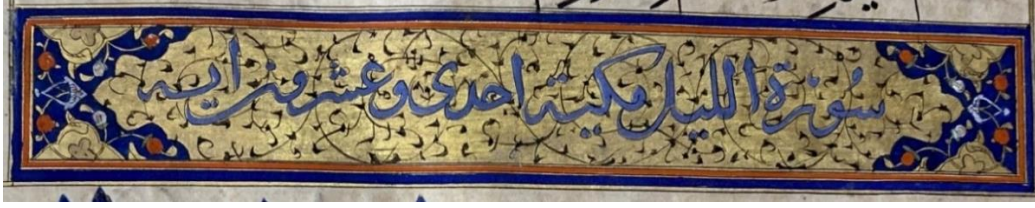 سُورَة الليل مكية احدى وعشرون اية